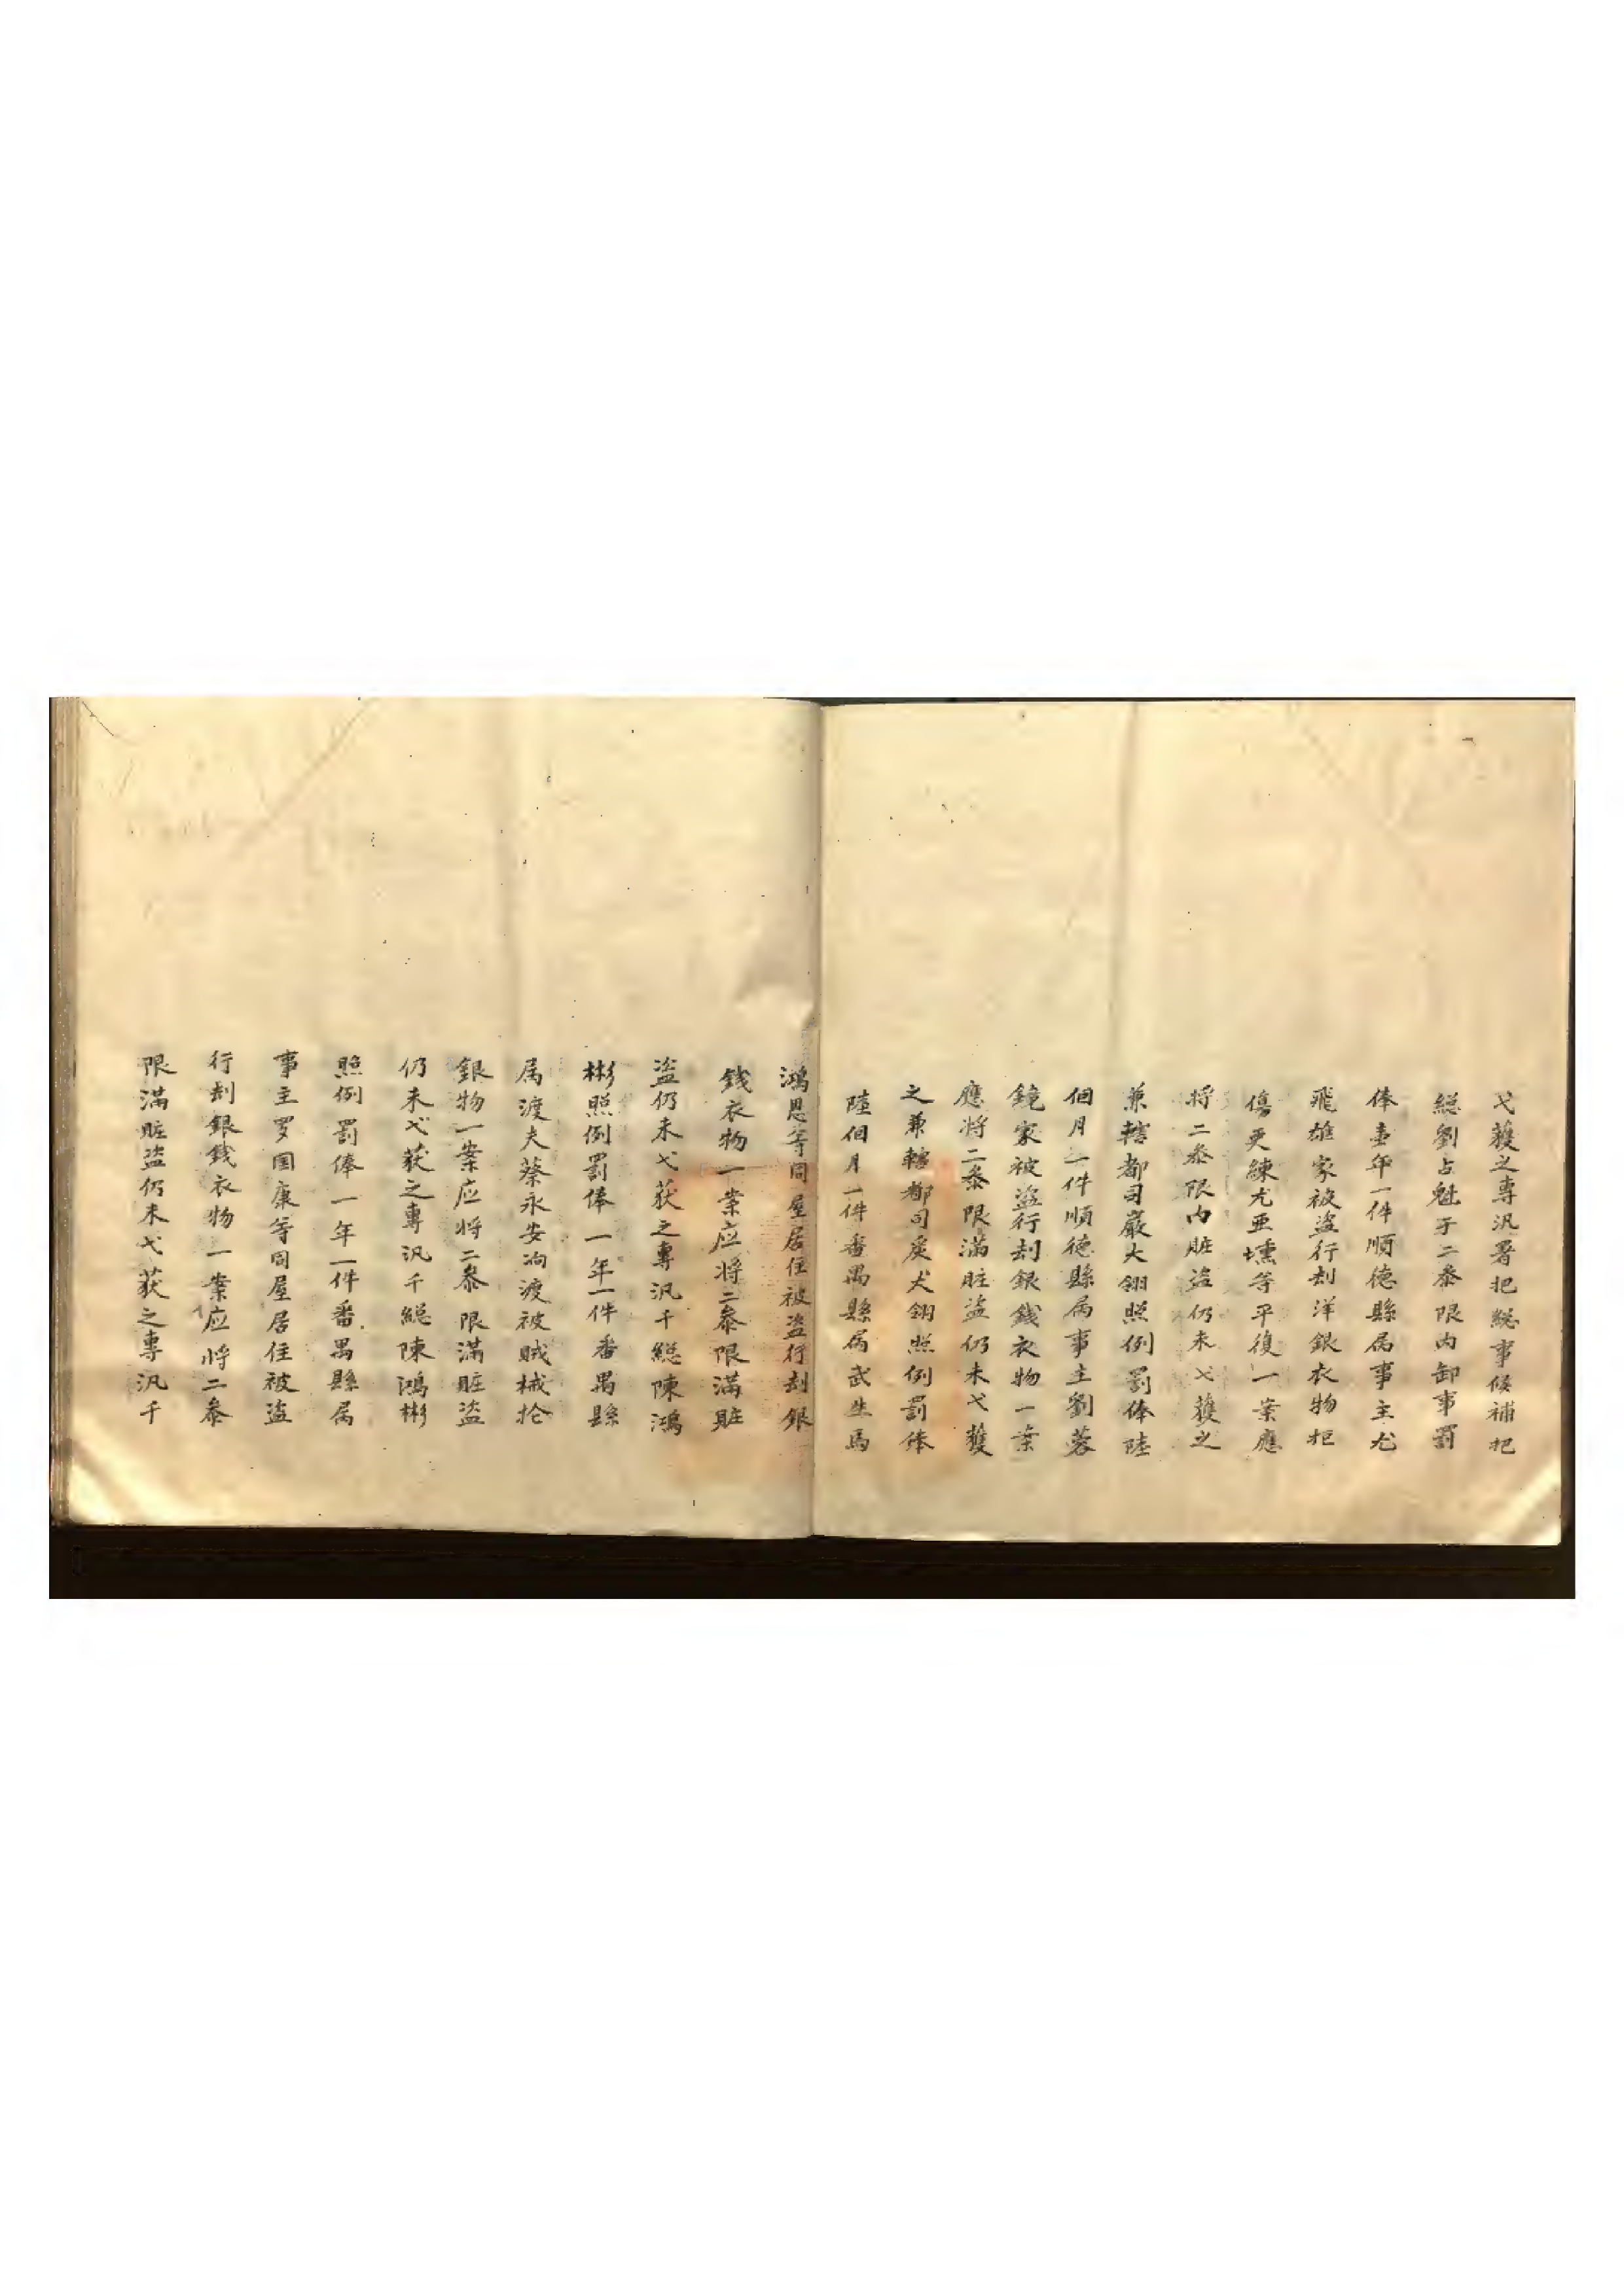 弋獲之專汛署把総事候補把
総劉占魁于二叅限内卸事罰
俸壹年一件順德縣属事主尤
飛雄家被盗行刦洋銀衣物拒
傷更練尤亚壎等平復一案應
将二叅限内賍盗仍未弋獲之
兼轄都司嚴大翎照例罰俸陸
個月一件順德縣属事主劉蓉
鏡家被盗行刦銀錢衣物一案
應将二叅限滿賍盗仍未弋獲
之兼轄都司嚴大翎照例罰俸
陸個月一件番禺縣属武生馬
鴻恩等同屋居住被盗行刦銀
錢衣物一案应将二叅限滿賍
盗仍未弋获之專汛千総陳鴻
彬照例罰俸一年一件番禺縣
属渡夫蔡永安泃渡被贼械抢
銀物一案应将二叅限滿賍盗
仍未弋获之專汛千総陳鴻彬
照例罰俸一年一件番禺縣属
事主罗国康等同屋居住被盗
行刦銀錢衣物一案应将二叅
限滿賍盗仍未弋获之專汛千